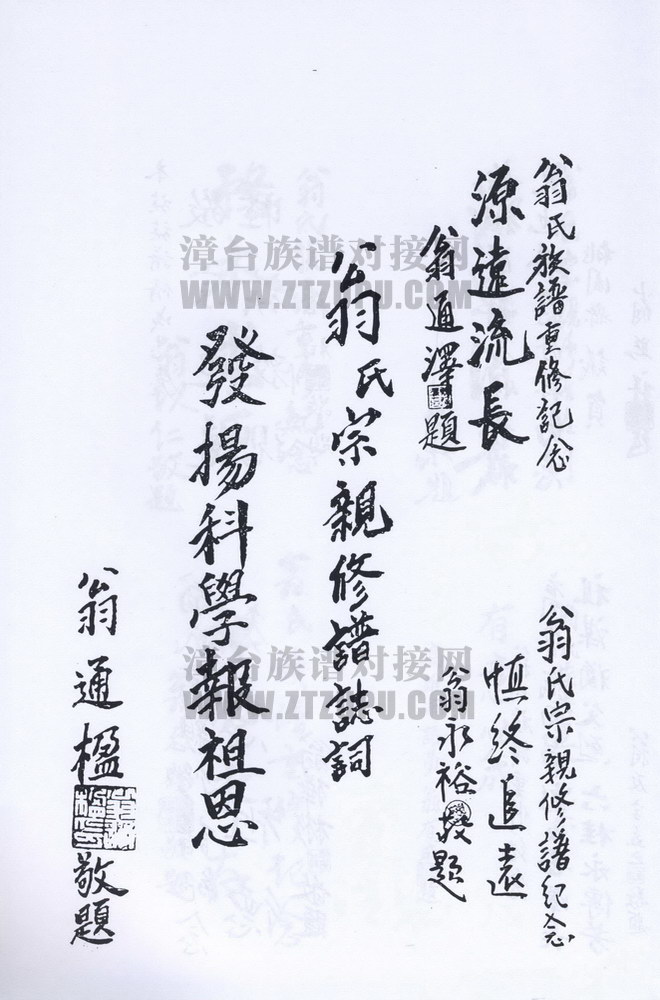 翁氏族譜重修記念
源遠流長
翁通澤題
翁氏宗親修譜紀念
慎終追遠
翁永裕敬題
翁氏宗親修譜誌詞
發揚科學報祖恩
翁通楹敬題
漳台族谱对接网
WWW.ZTZUPU.COM
漳台族谱对接网
WWW.ZTZUPU.COM